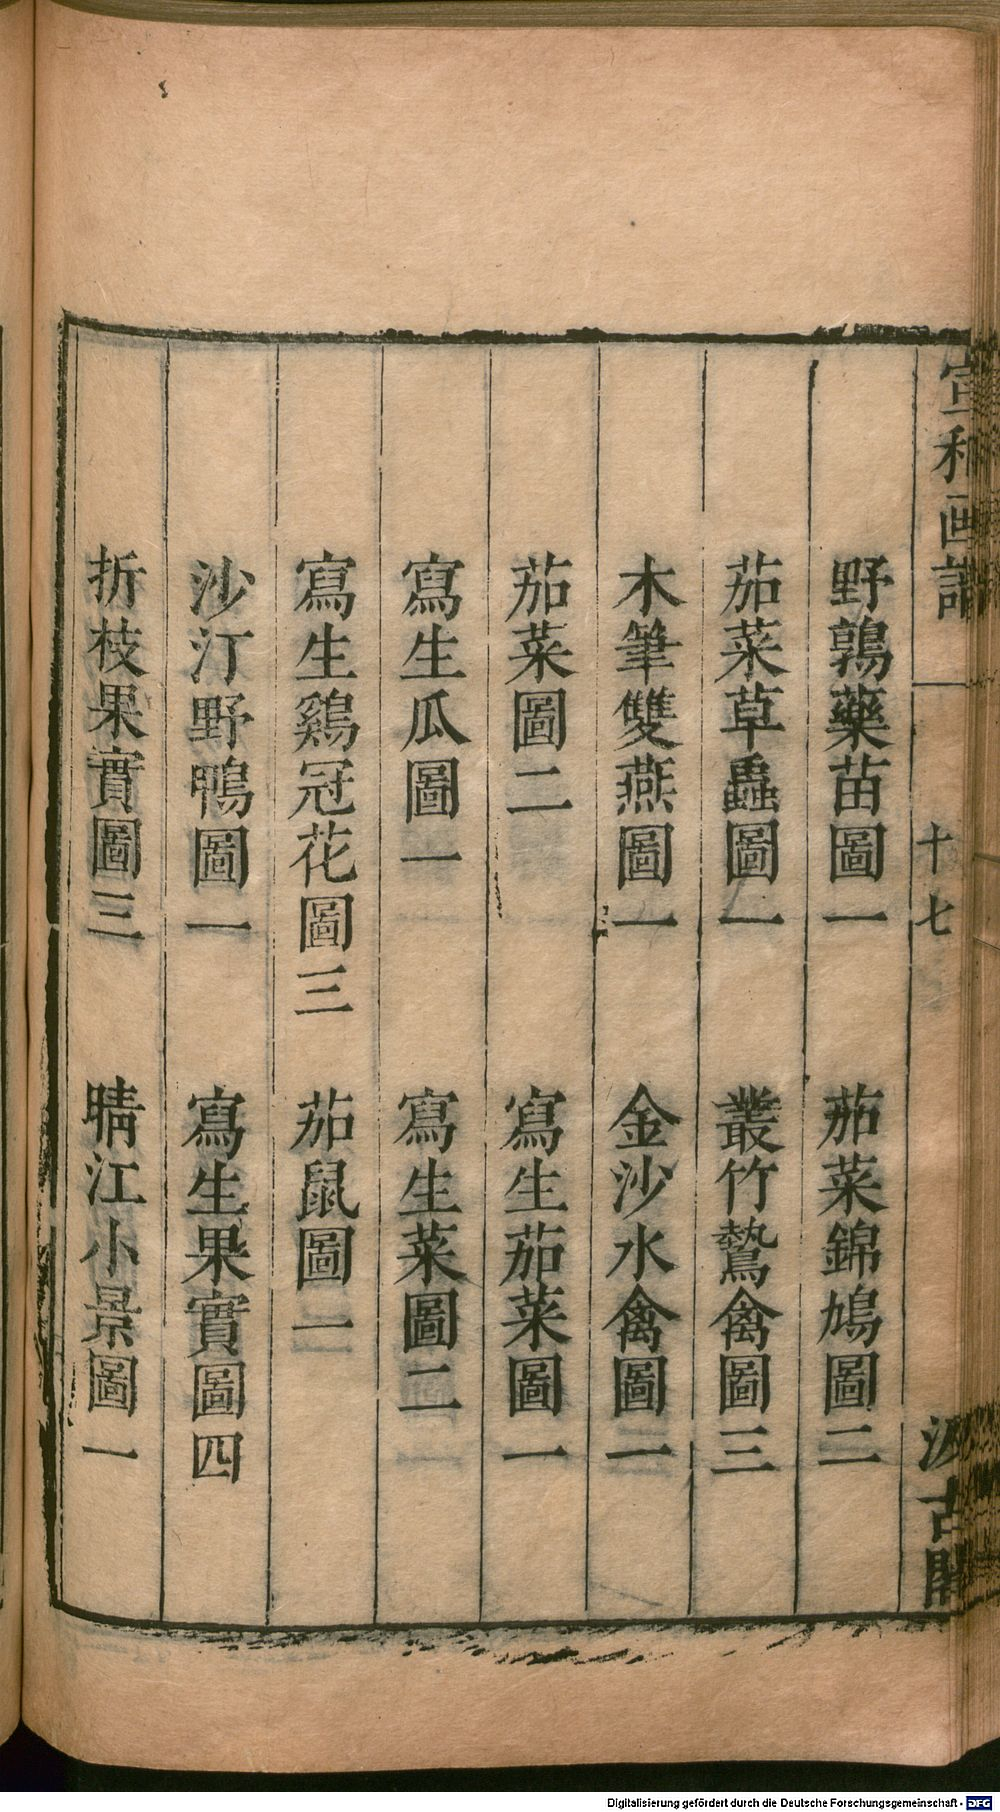 宣和画譜 十七 汲古閣
野鶉藥苗圖一 茄菜錦鳩圖二
茄菜草蟲圖一 叢竹鷙禽圖三
木筆雙燕圖一 金沙水禽圖一
茄菜圖二 寫生茄菜圖一
寫生瓜圖一 寫生菜圖二
寫生鷄冠花圖三 茄鼠圖一
沙汀野鴨圖一 寫生果實圖四
折枝果實圖三 晴江小景圖一
Digitalisierung gefördert durch die Deutsche Forschungsgemeinschaft - DFG